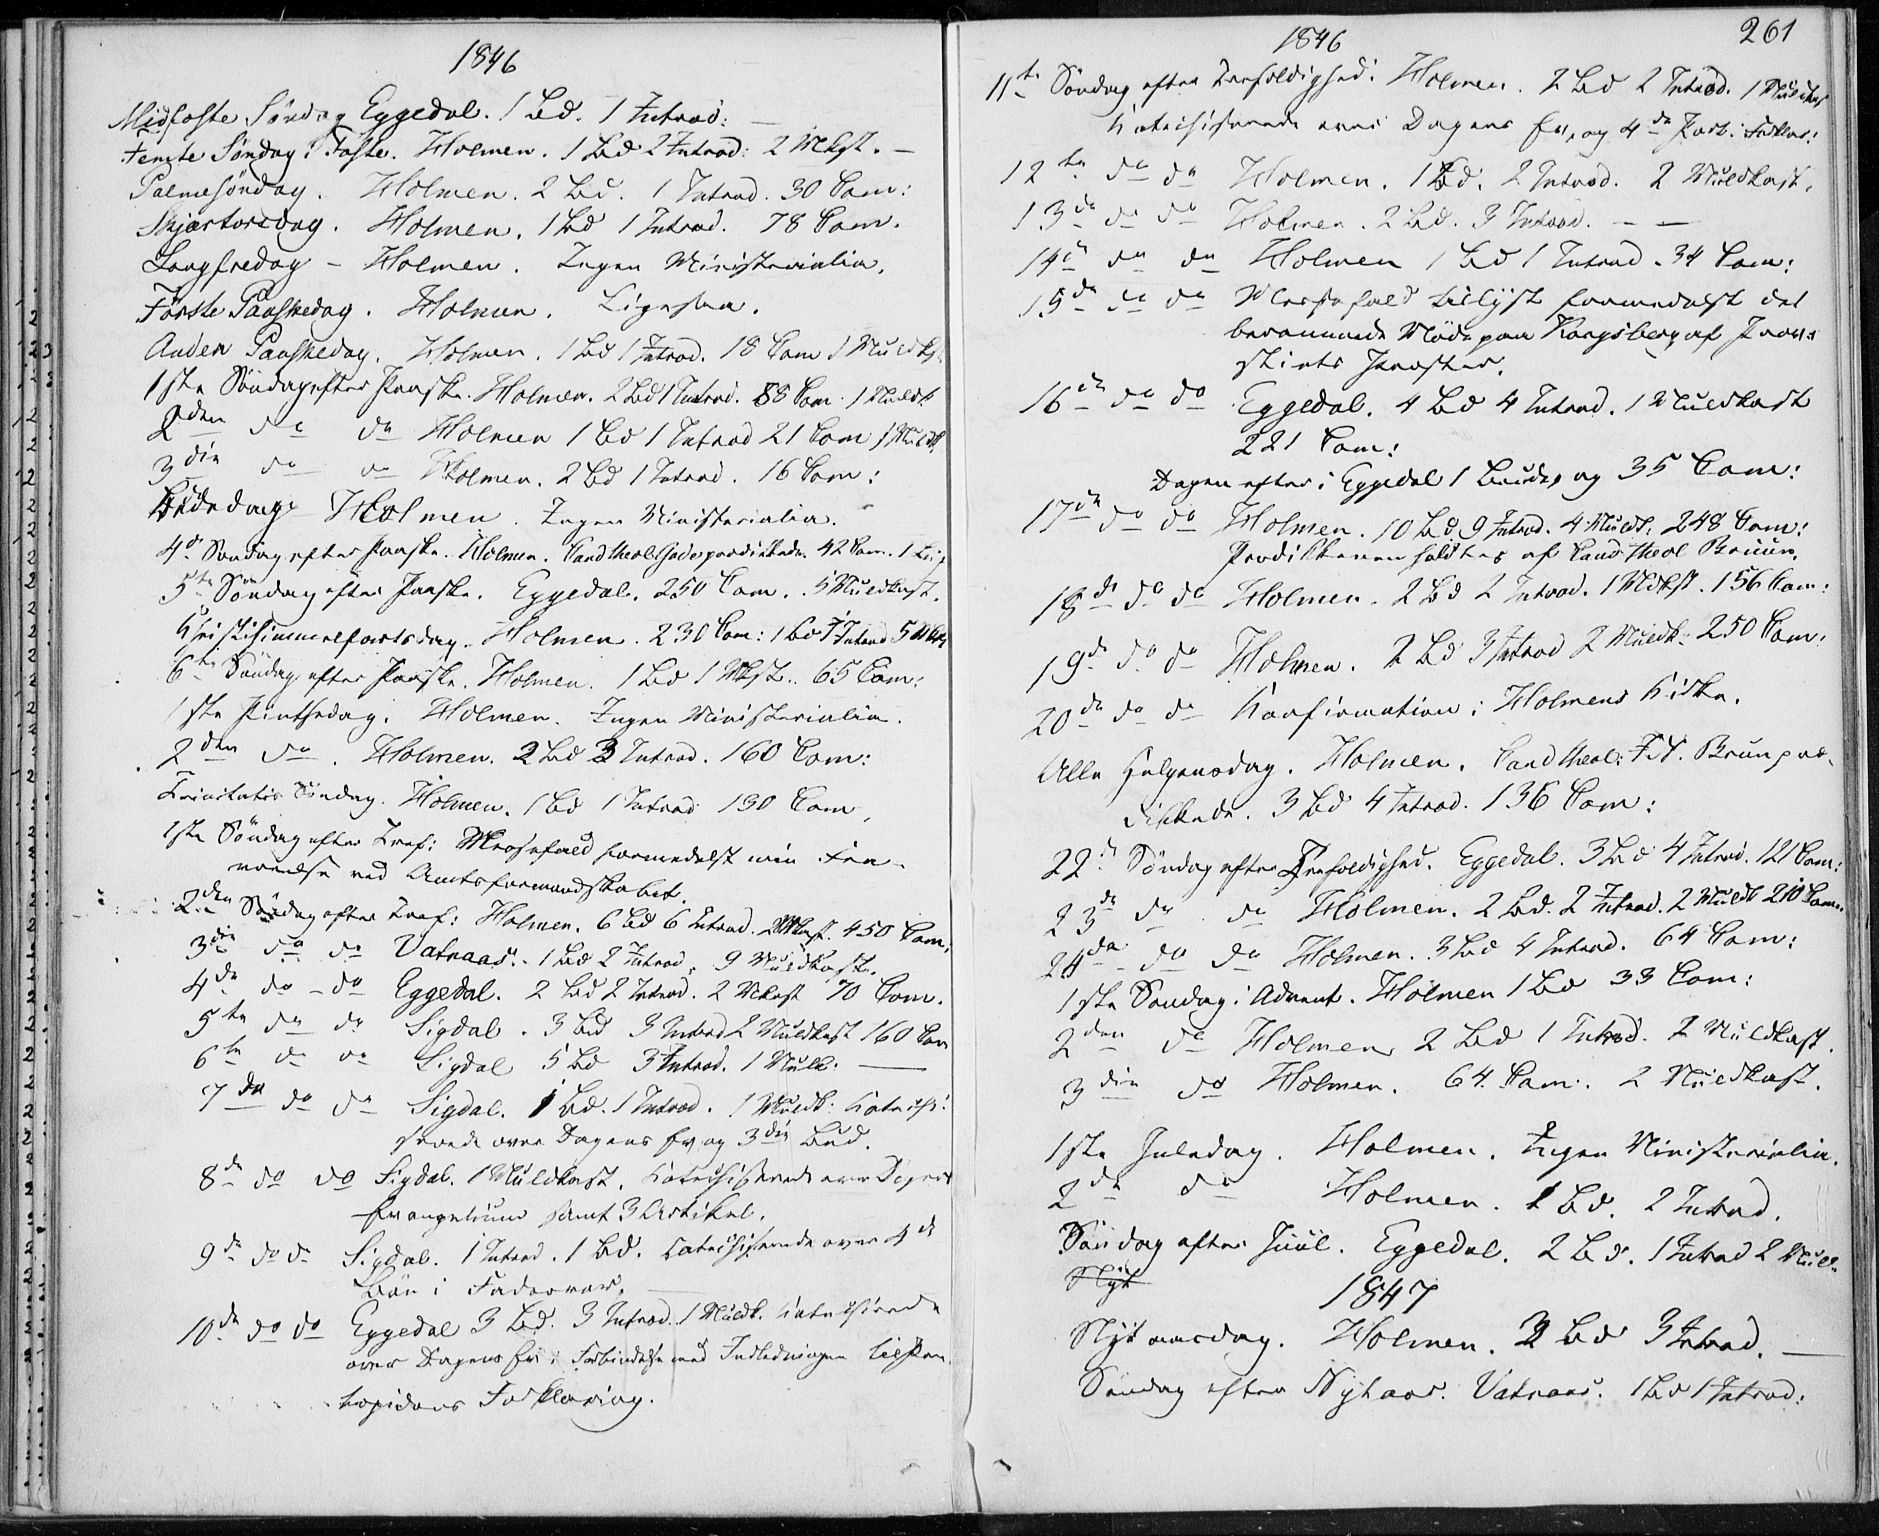 1846
Midfaste Søndag Eggedal. 1 Bd. 1 Introd: —
Femte Søndag i Faste. Holmen. 1 Bd 2 Introd: 2 Mkst. —
Palmesøndag. Holmen. 2 Bd. 1 Introd. 30 Com:
Skjærtorsdag. Holmen. 1 Bd 1 Introd. 78 Com.
Langfredag – Holmen. Ingen Ministerialia.
Første Paaskedag. Holmen. Ligesaa.
Anden Paaskedag. Holmen. 1 Bd 1 Introd. 18 Com 1 Muldk.
1ste Søndag efter Paaske. Holmen. 2 Bd 1 Introd. 88 Com. 1 Muldk
2den do do Holmen 1 Bd 1 Introd 21 Com 1 Muldk
3die do do Holmen. 2 Bd 1 Introd. 16 Com:
Bededag Holmen. Ingen Ministerialia.
4de Søndag efter Paaske. Holmen. Cand theol: prædikede. 42 Com. 1
5te Søndag efter Paaske. Eggedal. 250 Com. 5 Muldkast.
Christihimmelfartsdag. Holmen. 230 Com: 1 Bd 1 Introd 5 Mkst
6te Søndag efter Paaske. Holmen. 1 Bd 1 Mkst. 65 Com:
1ste Pintsedag. Holmen. Ingen Ministerialia.
2den do. Holmen. 2 Bd 3 Introd. 160 Com:
Trinitatis Søndag. Holmen. 1 Bd 1 Introd 130 Com.
1ste Søndag efter Tref: Messefald formedelst min Fra-
værelse ved Amtsformandskabet.
2den Søndag efter Tref: Holmen. 6 Bd 6 Introd. 2 Mkast. 450 Com:
3die do do Vatnaas. 1 Bd 2 Introd. 9 Muldkast.
4de do – do Eggedal. 2 Bd 2 Introd. 2 Mkast 70 Com.
5te do do Sigdal. 3 Bd 3 Introd 2 Muldkast 160 Com
6te do do Sigdal 5 Bd 3 Introd. 1 Mulk. —
7de do do Sigdal. 1 Bd. 1 Introd. 1 Muldk: Katechi-
serede over Dagens Ev. og 3die Bud.
8de do do Sigdal. 1 Muldkast. Katechiserede over Dagens
Evangelium samt 3 Artikel.
9de do do Sigdal. 1 Introd. 1 Bd. Katechiserede over 4de
Bøn i Fadervor.
10de do do Eggedal 3 Bd. 3 Introd. 1 Muldk. Katechiserede
over Dagens Ev. i Forbindelse med Indledningen til Pon-
topidans Forklaring.
1846
261
11te Søndag efter Trefoldighed. Holmen. 2 Bd 2 Introd. 1 Muldkast
Katechiserede over Dagens Ev. og 4de Part i Forklar:
12te do do Holmen. 1 Bd. 2 Introd. 2 Muldkast.
13de do do Holmen. 2 Bd. 3 Introd. — —
14de do do Holmen 1 Bd 1 Introd. 34 Com:
15de do do Messefald tillyst formedelst det
berammede Møde paa Kongsberg af Prov-
stiets Præster.
16de do do Eggedal. 4 Bd 4 Introd. 1 Muldkast
221 Com:
Dagen efter i Eggedal 1 og 35 Com:
17de do do Holmen. 10 Bd 9 Introd. 4 Muldk: 248 Com:
Prædikenen holdtes af Cand: theol Bruun.
18de do do Holmen. 2 Bd 2 Introd. 1 Mldkst. 156 Com:
19de do do Holmen. 2 Bd 3 Introd 2 Muldk: 250 Com:
20de do do Konfirmation i Holmens Kirke.
Alle Helgensdag. Holmen. Cand theol: Brun præ-
dikede. 3 Bd 4 Introd. 136 Com:
22de Søndag efter Trefoldighed. Eggedal. 3 Bd 4 Introd. 121 Com:
23de do do Holmen. 2 Bd. 2 Introd. 2 Muldk 210 Com:
24de do do Holmen. 3 Bd 4 Introd. 64 Com:
1ste Søndag i Advent. Holmen 1 Bd 33 Com:
2den do Holmen 2 Bd 1 Introd. 2 Muldkast.
3die do Holmen. 64 Com. 2 Muldkast.
1ste Juledag. Holmen. Ingen Ministerialia.
2de do Holmen. 1 Bd. 2 Introd.
Søndag efter Juul. Eggedal. 2 Bd. 1 Introd 2 Muldk.
Nyt
1847
Nytaarsdag. Holmen. 3 Bd 3 Introd. —
Søndag efter Nytaar. Vatnaas. 1 Bd 1 Introd: